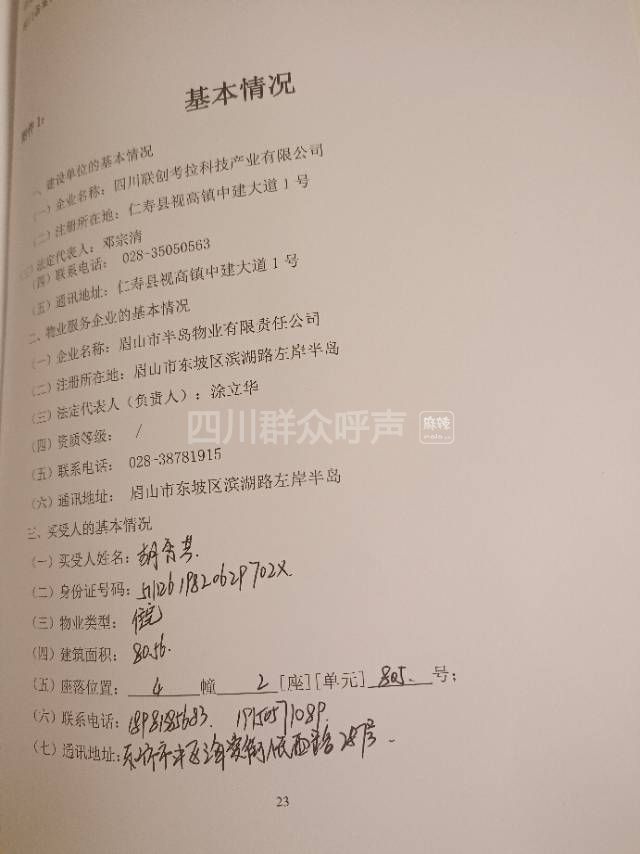 基本情况
附件1:
一、建设单位的基本情况
(一)企业名称:四川联创考拉科技产业有限公司
(二)注册所在地:仁寿县视高镇中建大道1号
法定代表人:邓宗清
(四)联系电话: 028-35050563
(五)通讯地址:仁寿县视高镇中建大道1号
二、物业服务企业的基本情况
(一)企业名称:眉山市半岛物业有限责任公司
(二)注册所在地:眉山市东坡区滨湖路左岸半岛
(三)法定代表人(负责人):涂立华
四川群众呼声 麻辣
(四)资质等级: /
(五)联系电话: 028-38781915
(六)通讯地址: 眉山市东坡区滨湖路左岸半岛
三、买受人的基本情况
(一)买受人姓名:胡
(二)身份证号码:5112619820629702X
(三)物业类型:住宅
(四)建筑面积:80.56.
(五)座落位置: 4 幢 2 [座][单元] 805. 号;
(六)联系电话:18981185683. 19150571089.
(七)通讯地址:
23